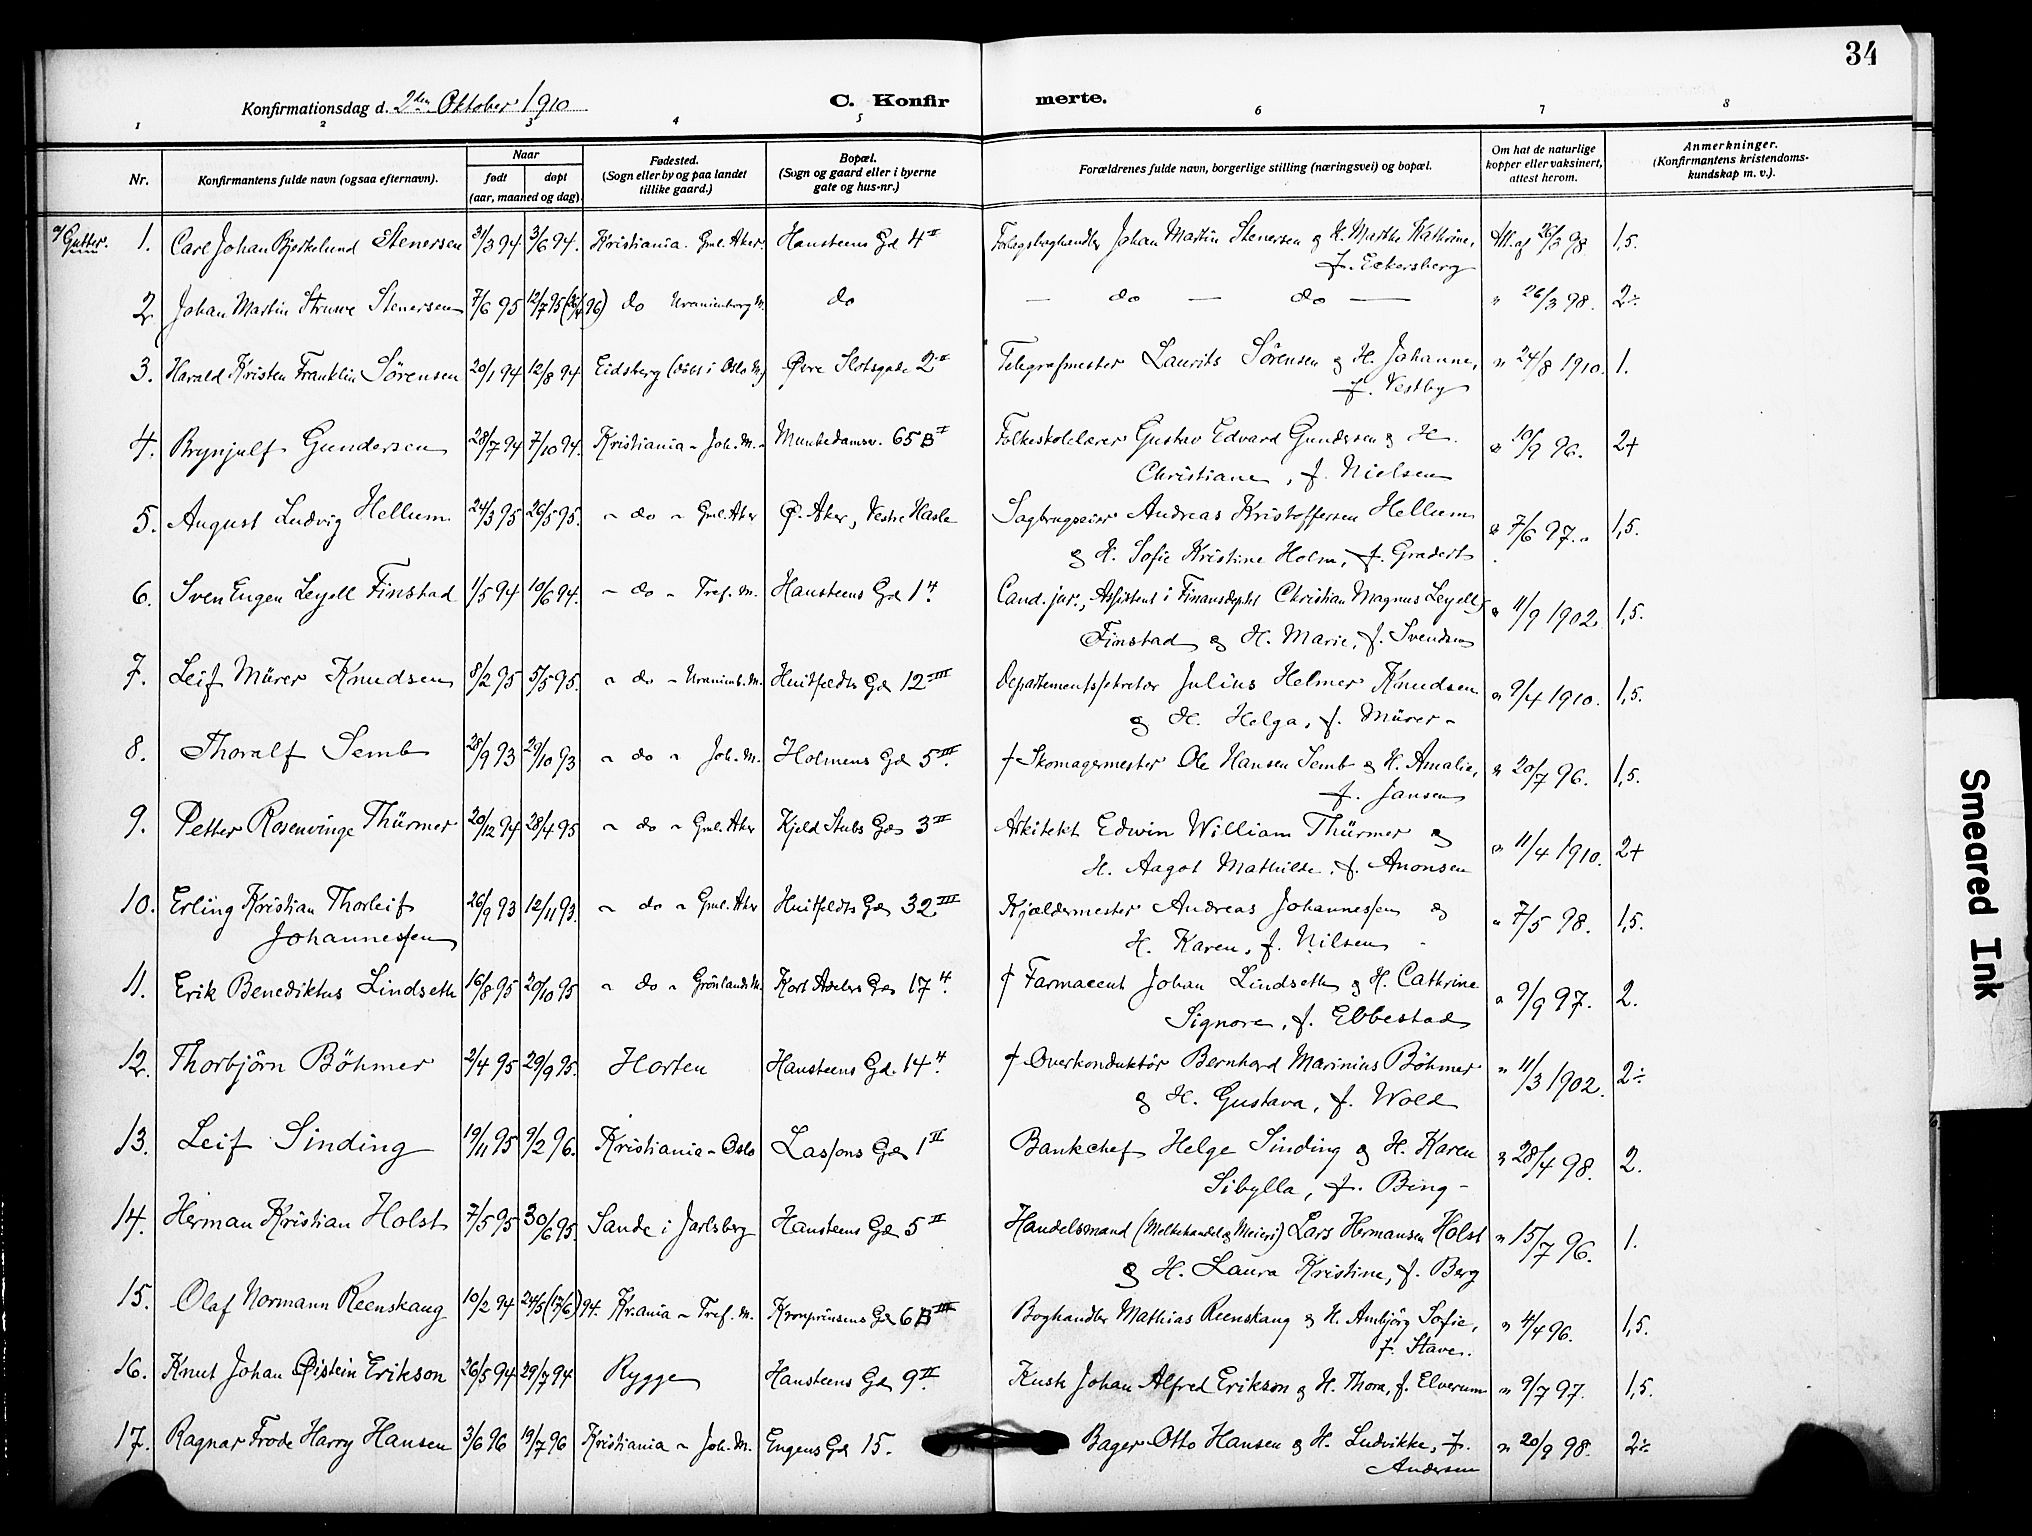 34
Konfirmationsdag d. 2den Oktober 1910
C. Konfirmerte.
1 2 3 4 5 6 7 8
Nr.
Konfirmantens fulde navn (ogsaa efternavn).
Naar
født
døpt
(aar, maaned og dag).
Fødested.
(Sogn eller by og paa landet
tillike gaard.)
Bopæl.
(Sogn og gaard eller i byerne
gate og hus-nr.)
Forældrenes fulde navn, borgerlige stilling (næringsvei) og bopæl.
Om hat de naturlige
kopper eller vaksinert,
attest herom.
Anmerkninger.
(Konfirmantens kristendoms-
kundskap m. v.).
a/ Gutter. 1. Carl Johan Bjerkelund Stenersen 31/3 94 3/6 94. Kristiania - Gml. Aker. Hansteens Gd 4 II Forlagsboghandler Johan Martin Stenersen & H. Marthe Kathrine, Att. af 26/3 98. 1,5.
f. Eckersberg
2. Johan Martin Struwe Stenersen 7/6 95 12/7 95 do Uranienborg M. do — do — do — " 26/3 98. 2÷
3. Harald Kristen Franklin Sörensen 20/1 94 12/8 94 Eidsberg Øvre Slotsgade 2 II Telegrafmester Laurits Sørensen & H. Johanne, " 24/8 1910. 1.
f. Vestby
4. Brynjulf Gundersen 28/7 94 7/10 94. Kristiania - Joh. M. - Munkedamsv. 65 B I Folkeskolelærer Gustav Edvard Gundersen & H. " 10/9 96. 2+
Christiane, f. Nielsen
5. August Ludvig Hellum 24/3 95 26/5 95. - do - Gml. Aker Ø. Aker, Vestre Hasle Sagbrugseier Andreas Kristoffersen Hellum " 7/6 97. 1,5.
& H. Sofie Kristine Holm, f. Gradert
6. Sven Eugen Leyell Finstad 1/5 94 10/6 94. - do - Tref. M. Hansteens Gd 1 4. Cand. jur., Assistent i Finansdeptet Christian Magnus Leyell " 11/9 1902. 1,5.
Finstad & H. Marie, f. Svendsen
7. Leif Mürer Knudsen 8/2 95 5/5 95. - do - Uranienb. M. Huitfeldts Gd 12 III Departementssekretær Julius Helmer Knudsen " 9/4 1910. 1,5.
& H. Helga, f. Mürer -
8. Thoralf Semb 28/9 93 29/10 93 - do - Joh. M. Holmens Gd 5 III. † Skomagermester Ole Hansen Semb & H. Amalie, " 20/7 96. 1,5.
f. Jansen
9. Petter Rosenvinge Thürmer 20/12 94 28/4 95 - do - Gml. Aker Kjeld Stubs Gd 3 II Arkitekt Edwin William Thürmer & " 11/4 1910. 2+
H. Aagot Mathilde, f. Anonsen
10. Erling Kristian Thorleif 26/9 93 12/11 93. - do - Gml. Aker Huitfeldts Gd 32 III Kjældermester Andreas Johannessen & " 7/5 98. 1,5.
Johannessen H. Karen, f. Nilsen
11. Erik Benediktus Lindseth 16/8 95 20/10 95 - do - Grönlands M. Kort Adelers Gd 17 4. † Farmaceut Johan Lindseth & H. Cathrine " 9/9 97. 2.
Signora, f. Ebbestad
12. Thorbjörn Böhmer 2/4 95 29/9 95. Horten Hansteens Gd. 14 4. † Overkonduktör Bernhard Marinius Böhmer " 11/3 1902. 2÷
& H. Gustava, f. Wold
13. Leif Sinding 19/11 95 9/2 96. Kristiania - Oslo Lassons Gd 1 II Bankchef Helge Sinding & H. Karen " 28/4 98. 2.
Sibylla, f. Bing -
14. Herman Kristian Holst 7/5 95 30/6 95. Sande i Jarlsberg Hansteens Gd 5 II Handelsmand (Melkehandel & Meieri) Lars Hermansen Holst " 15/7 96. 1.
& H. Laura Kristine, f. Berg
15. Olaf Normann Reenskaug 10/2 94 24/5 (17/6) 94. Kr.ania - Tref. M. Kronprinsens Gd 6 B III Boghandler Mathias Reenskaug & H. Ambjörg Sofie, " 4/4 96. 1,5.
f. Stave.
16. Knut Johan Øistein Erikson 26/5 94 29/7 94 Rygge Hansteens Gd 9 II. Kusk Johan Alfred Erikson & H. Thora, f. Elverum " 9/7 97. 1,5.
17. Ragnar Frode Harry Hansen 3/6 96 19/7 96 Kristiania - Joh. M. Engens Gd 15. Bager Otto Hansen & H. Ludvikke, f. " 20/9 98. 2÷
Andersen
Smeared Ink